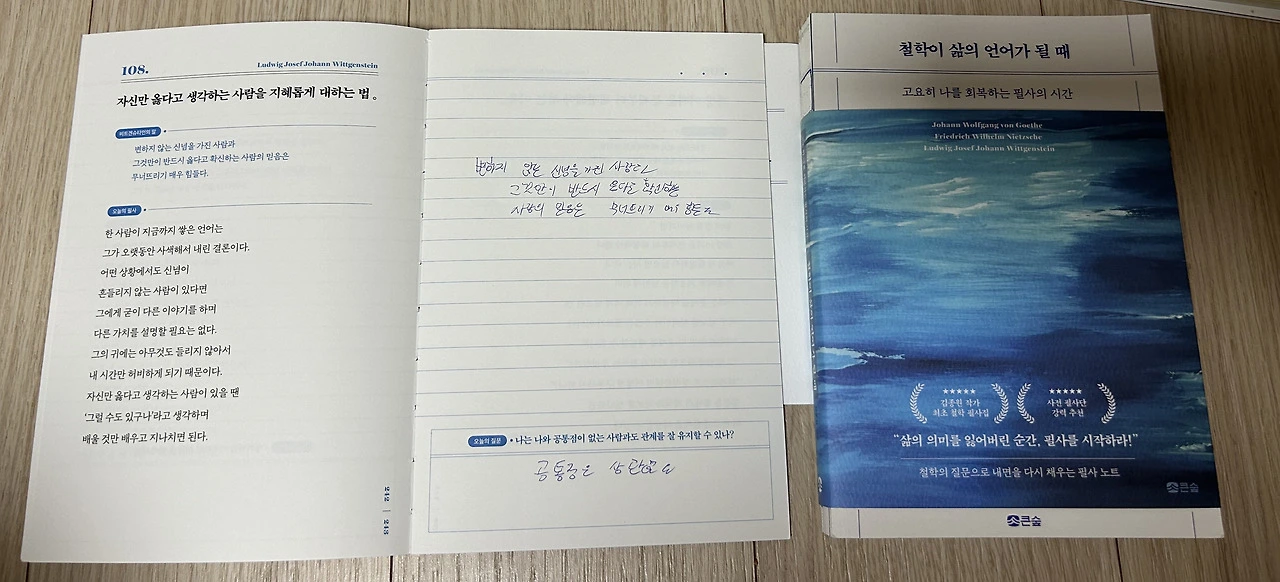 108.
Ludwig Josef Johann Wittgenstein
자신만 옳다고 생각하는 사람을 지혜롭게 대하는 법。
비트겐슈타인의 말
변하지 않는 신념을 가진 사람과
그것만이 반드시 옳다고 확신하는 사람의 믿음은
무너뜨리기 매우 힘들다.
오늘의 필사
한 사람이 지금까지 쌓은 언어는
그가 오랫동안 사색해서 내린 결론이다.
어떤 상황에서도 신념이
흔들리지 않는 사람이 있다면
그에게 굳이 다른 이야기를 하며
다른 가치를 설명할 필요는 없다.
그의 귀에는 아무것도 들리지 않아서
내 시간만 허비하게 되기 때문이다.
자신만 옳다고 생각하는 사람이 있을 땐
'그럴 수도 있구나'라고 생각하며
배울 것만 배우고 지나치면 된다.
242 | 243
변하지 않는 신념을 가진 사람과
그것만이 반드시 옳다고 확신하는
사람의 믿음은 무너뜨리기 매우 힘들다
오늘의 질문 • 나는 나와 공통점이 없는 사람과도 관계를 잘 유지할 수 있나?
공통점은
철학이 삶의 언어가 될 때
고요히 나를 회복하는 필사의 시간
Johann Wolfgang von Goethe
Friedrich Wilhelm Nietzsche
Ludwig Josef Johann Wittgenstein
★★★★★
김종원 작가
최초 철학 필사집
★★★★★
사전 필사단
강력 추천
“삶의 의미를 잃어버린 순간, 필사를 시작하라!”
철학의 질문으로 내면을 다시 채우는 필사 노트
큰숲
큰숲